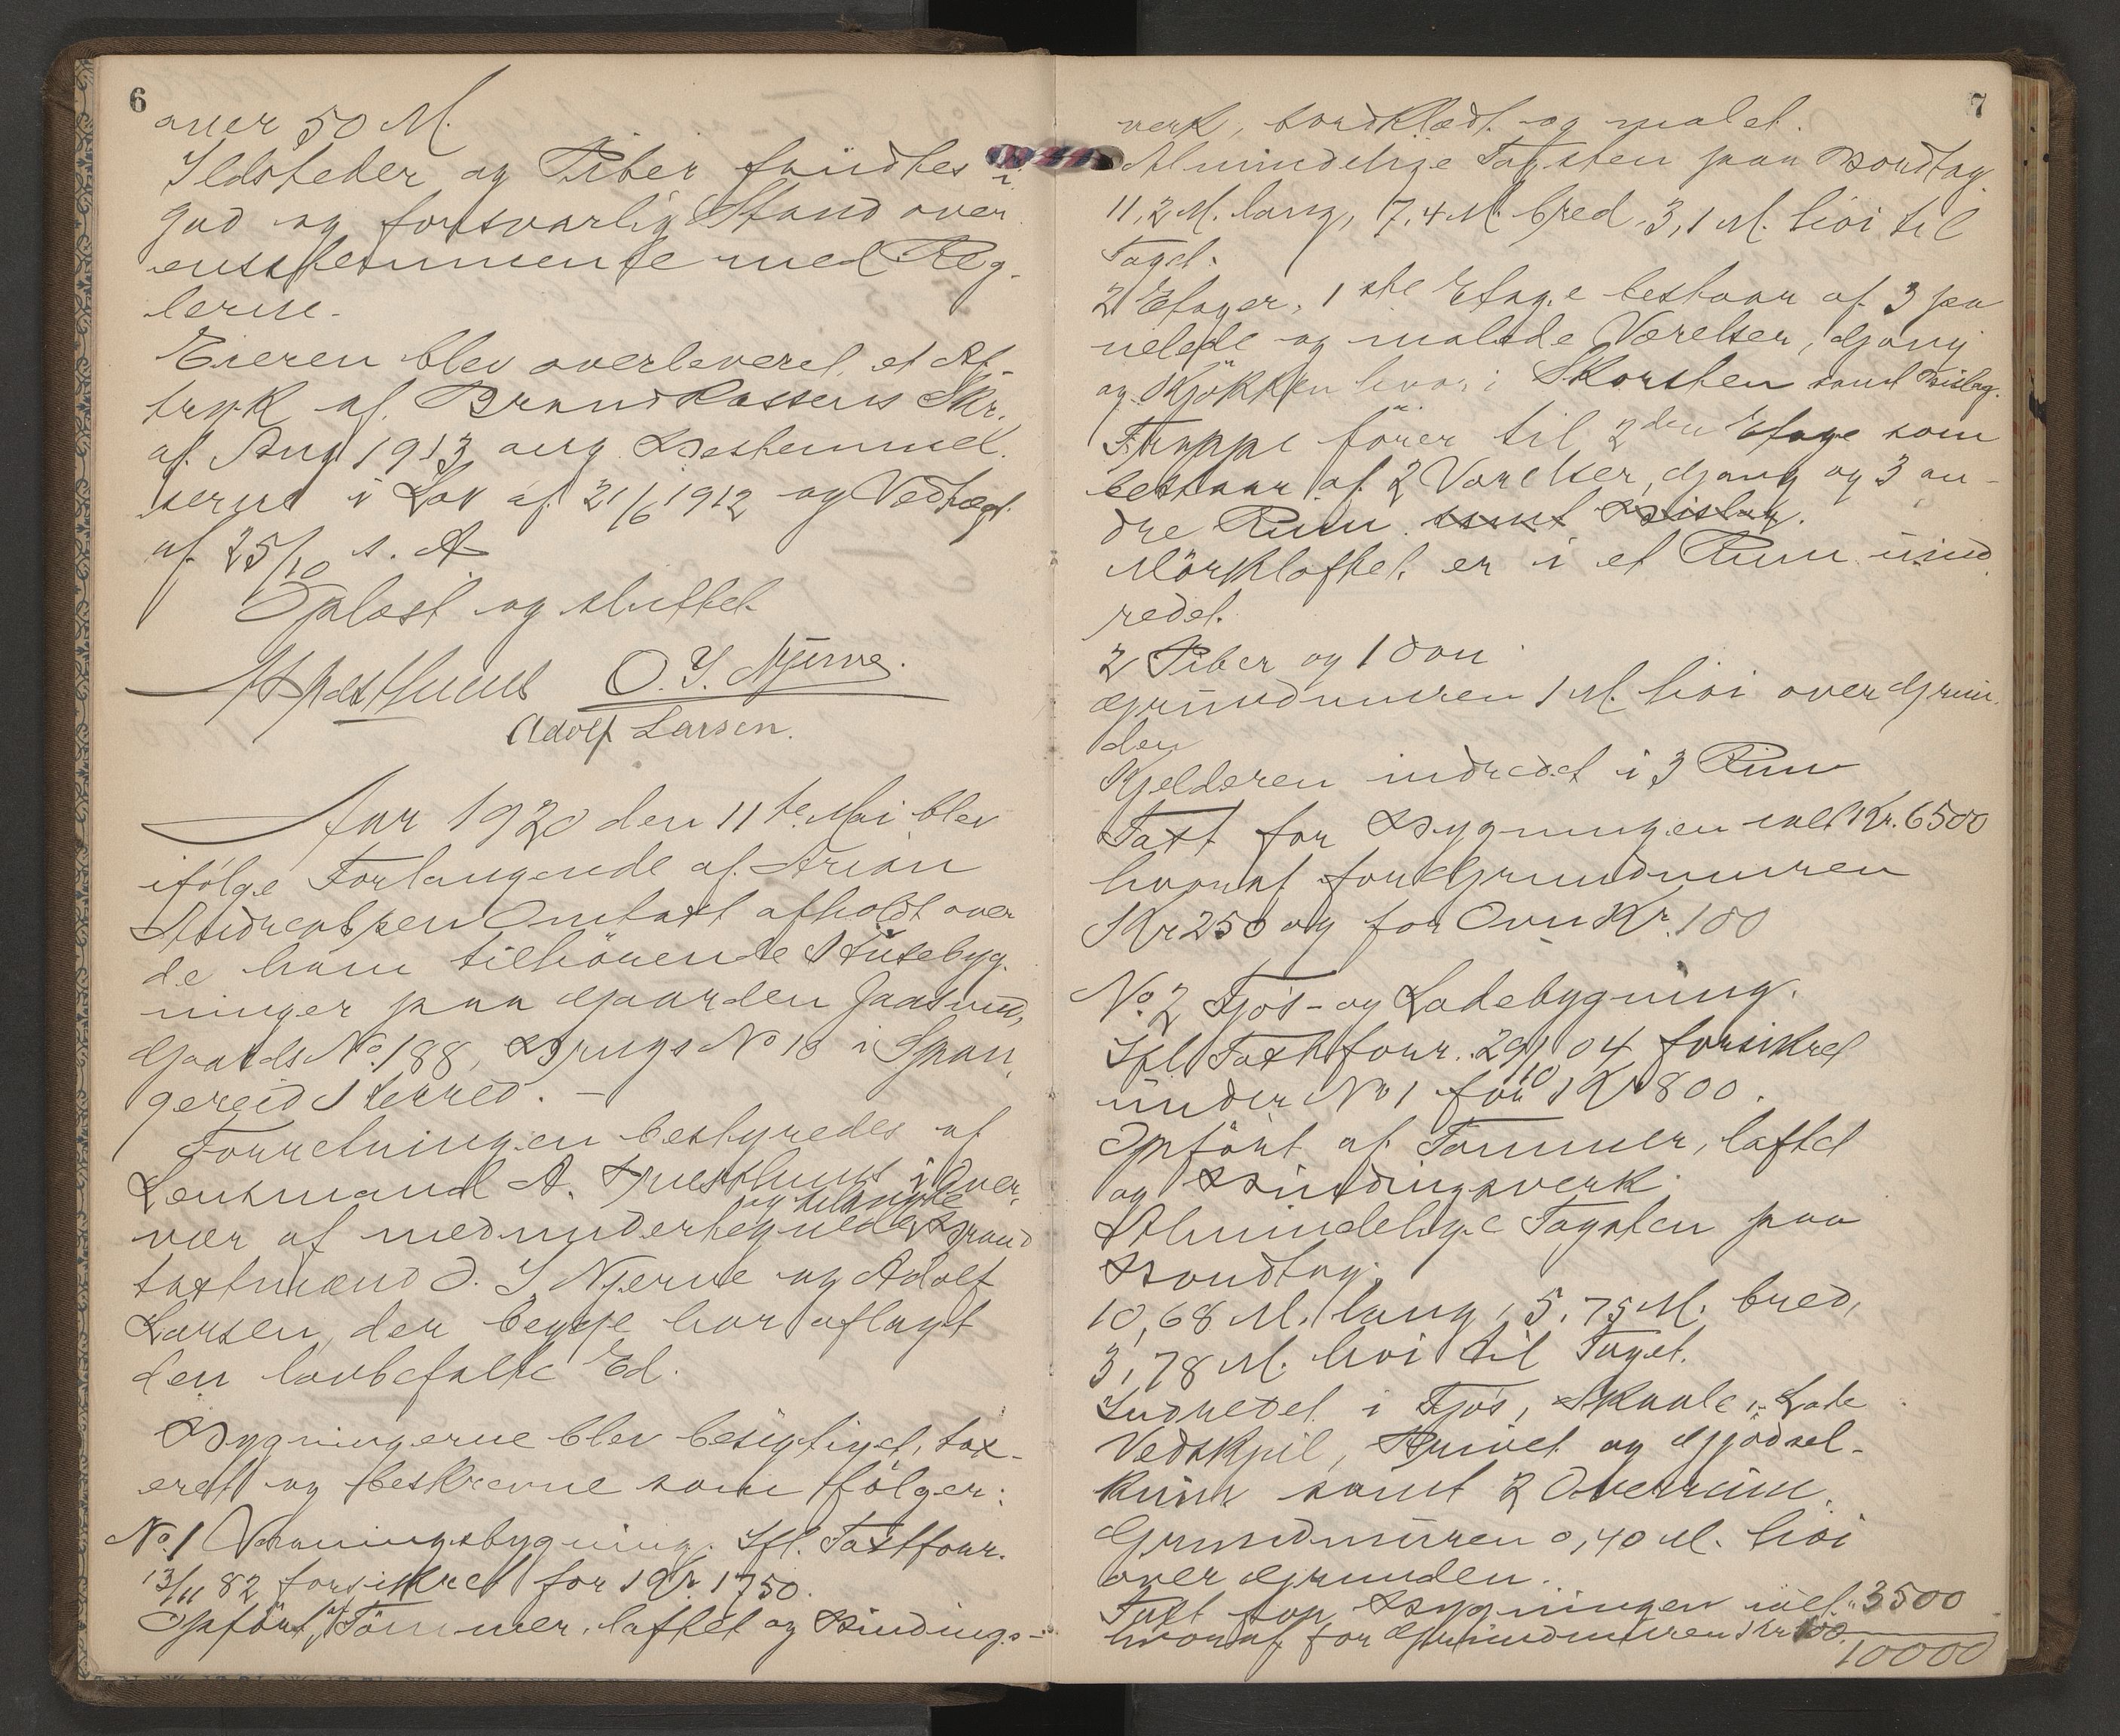 6
over 50 M.
Ildsteder og Piber fandtes i
god og forsvarlig Stand over
ensstemmende med Reg-
lerne.
Eieren blev overleveret et Af-
tryk af Brandkassens Skr.
af Aug 1913 ang. Bestemmel
serne i Lov af 21/6 1912 og Vedtægt
af 25/10 s. A.
Oplæst og sluttet
O. I. Njerve.
Adolf Larsen.
Aar 1920 den 11te Mai blev
ifølge Forlangende af Arian
Andreassen Omtaxt afholdt over
de ham tilhörende Husebyg-
ninger paa Gaarden Jaasund,
Gaards No. 188, Brugs No 10 i Span-
gereid Herred. -
Forretningen bestyredes af
Lensmand A. i Over-
og tilkaldte
vær af medundertegnede Brand
taxtmænd O. I Njerve og Adolf
Larsen, der begge har aflagt
den lovbefalte Ed.
Bygningerne blev besigtiget, tax-
eret og beskrevne som fölger:
No. 1 Vaaningsbygning. Ifl. Taxtforr.
13/11 82 forsikret for Kr 1750.
Opfört af Tömmer, laftet og Bindings-
7
verk, bordklædt og malet.
Almindelige Tagsten paa Bordtag.
11,2 M. lang, 7,4 M. bred 3,1 M. høi til
Taget.
2 Etager, 1ste Etage bestaar af 3 pa
nelede og malede Værelser, Gang
og Kjökken hvori Skorsten samt Bislag.
Trappe förer til 2den Etage som
bestaar af 2 Værelser, Gang og 3 an-
dre Rum samt Bislag.
Mörkloftet er i et Rum uind
redet.
2 Piber og 1 Ovn.
Grundmuren 1 M. høi over Grun-
den
Kjelderen indredet i 3 Rum
Taxt for Bygningen inel Kr. 6500
hvoraf for Grundmuren
Kr 250 og for Ovn Kr. 100
No. 2 Fjös- og Ladebygning.
Ifl. Taxtforr. 29/10 04 forsikret
under No 1 for Kr 800.
Opfört af Tömmer, laftet
og Bindingsverk.
Almindelige Tagsten paa
Bordtag.
10,68 M. lang, 5,75 M. bred,
3,78 M. høi til Taget.
Indredet i Fjös, Skaale, Lade
Vedskjul, Privet og Gjödsel-
Rum samt 2 Overrum.
Grundmuren 0,40 M. høi
over Grunden.
Taxt for Bygningen inel. " 3500
hvoraf for Grundmuren Kr 100.
10000